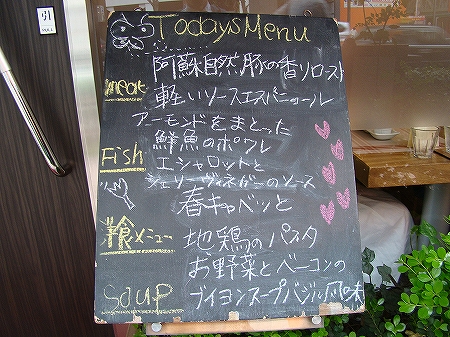 引
Today's Menu
阿蘇自然豚の香りロースト
meat
軽いソースエスパニョール
アーモンドをまとった
鮮魚のポワレ
Fish
エシャロットと
シェリーヴィネガーのソース
春キャベツと
軽食メニュー
地鶏のパスタ
お野菜とベーコンの
Soup
ブイヨンスープバジル風味